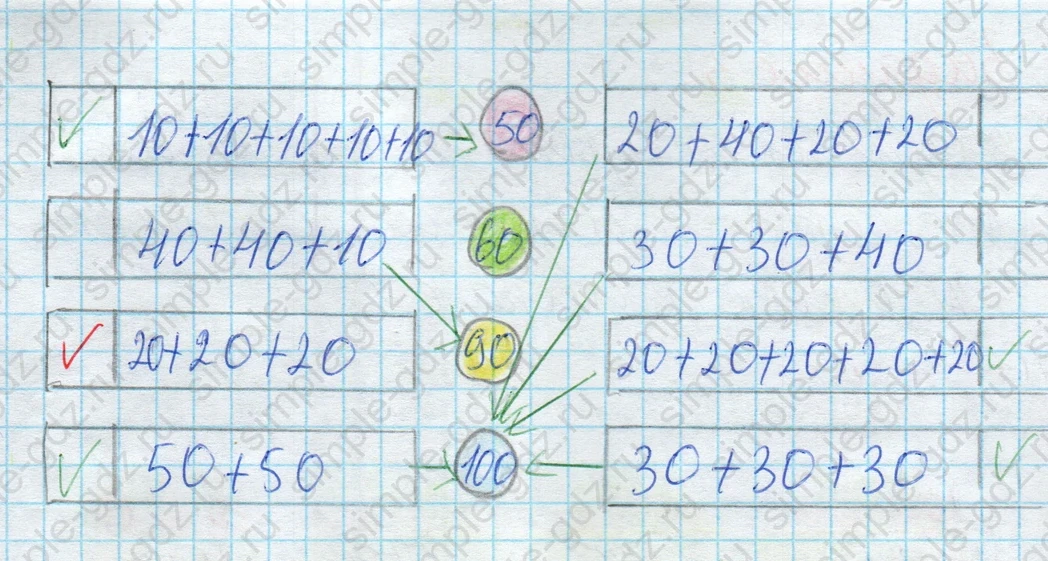 10+10+10+10+10 50 20+40+20+20
40+40+10 60 30+30+40
20+20+20 90 20+20+20+20+20
50+50 100 30+30+30
simple-gdz.ru